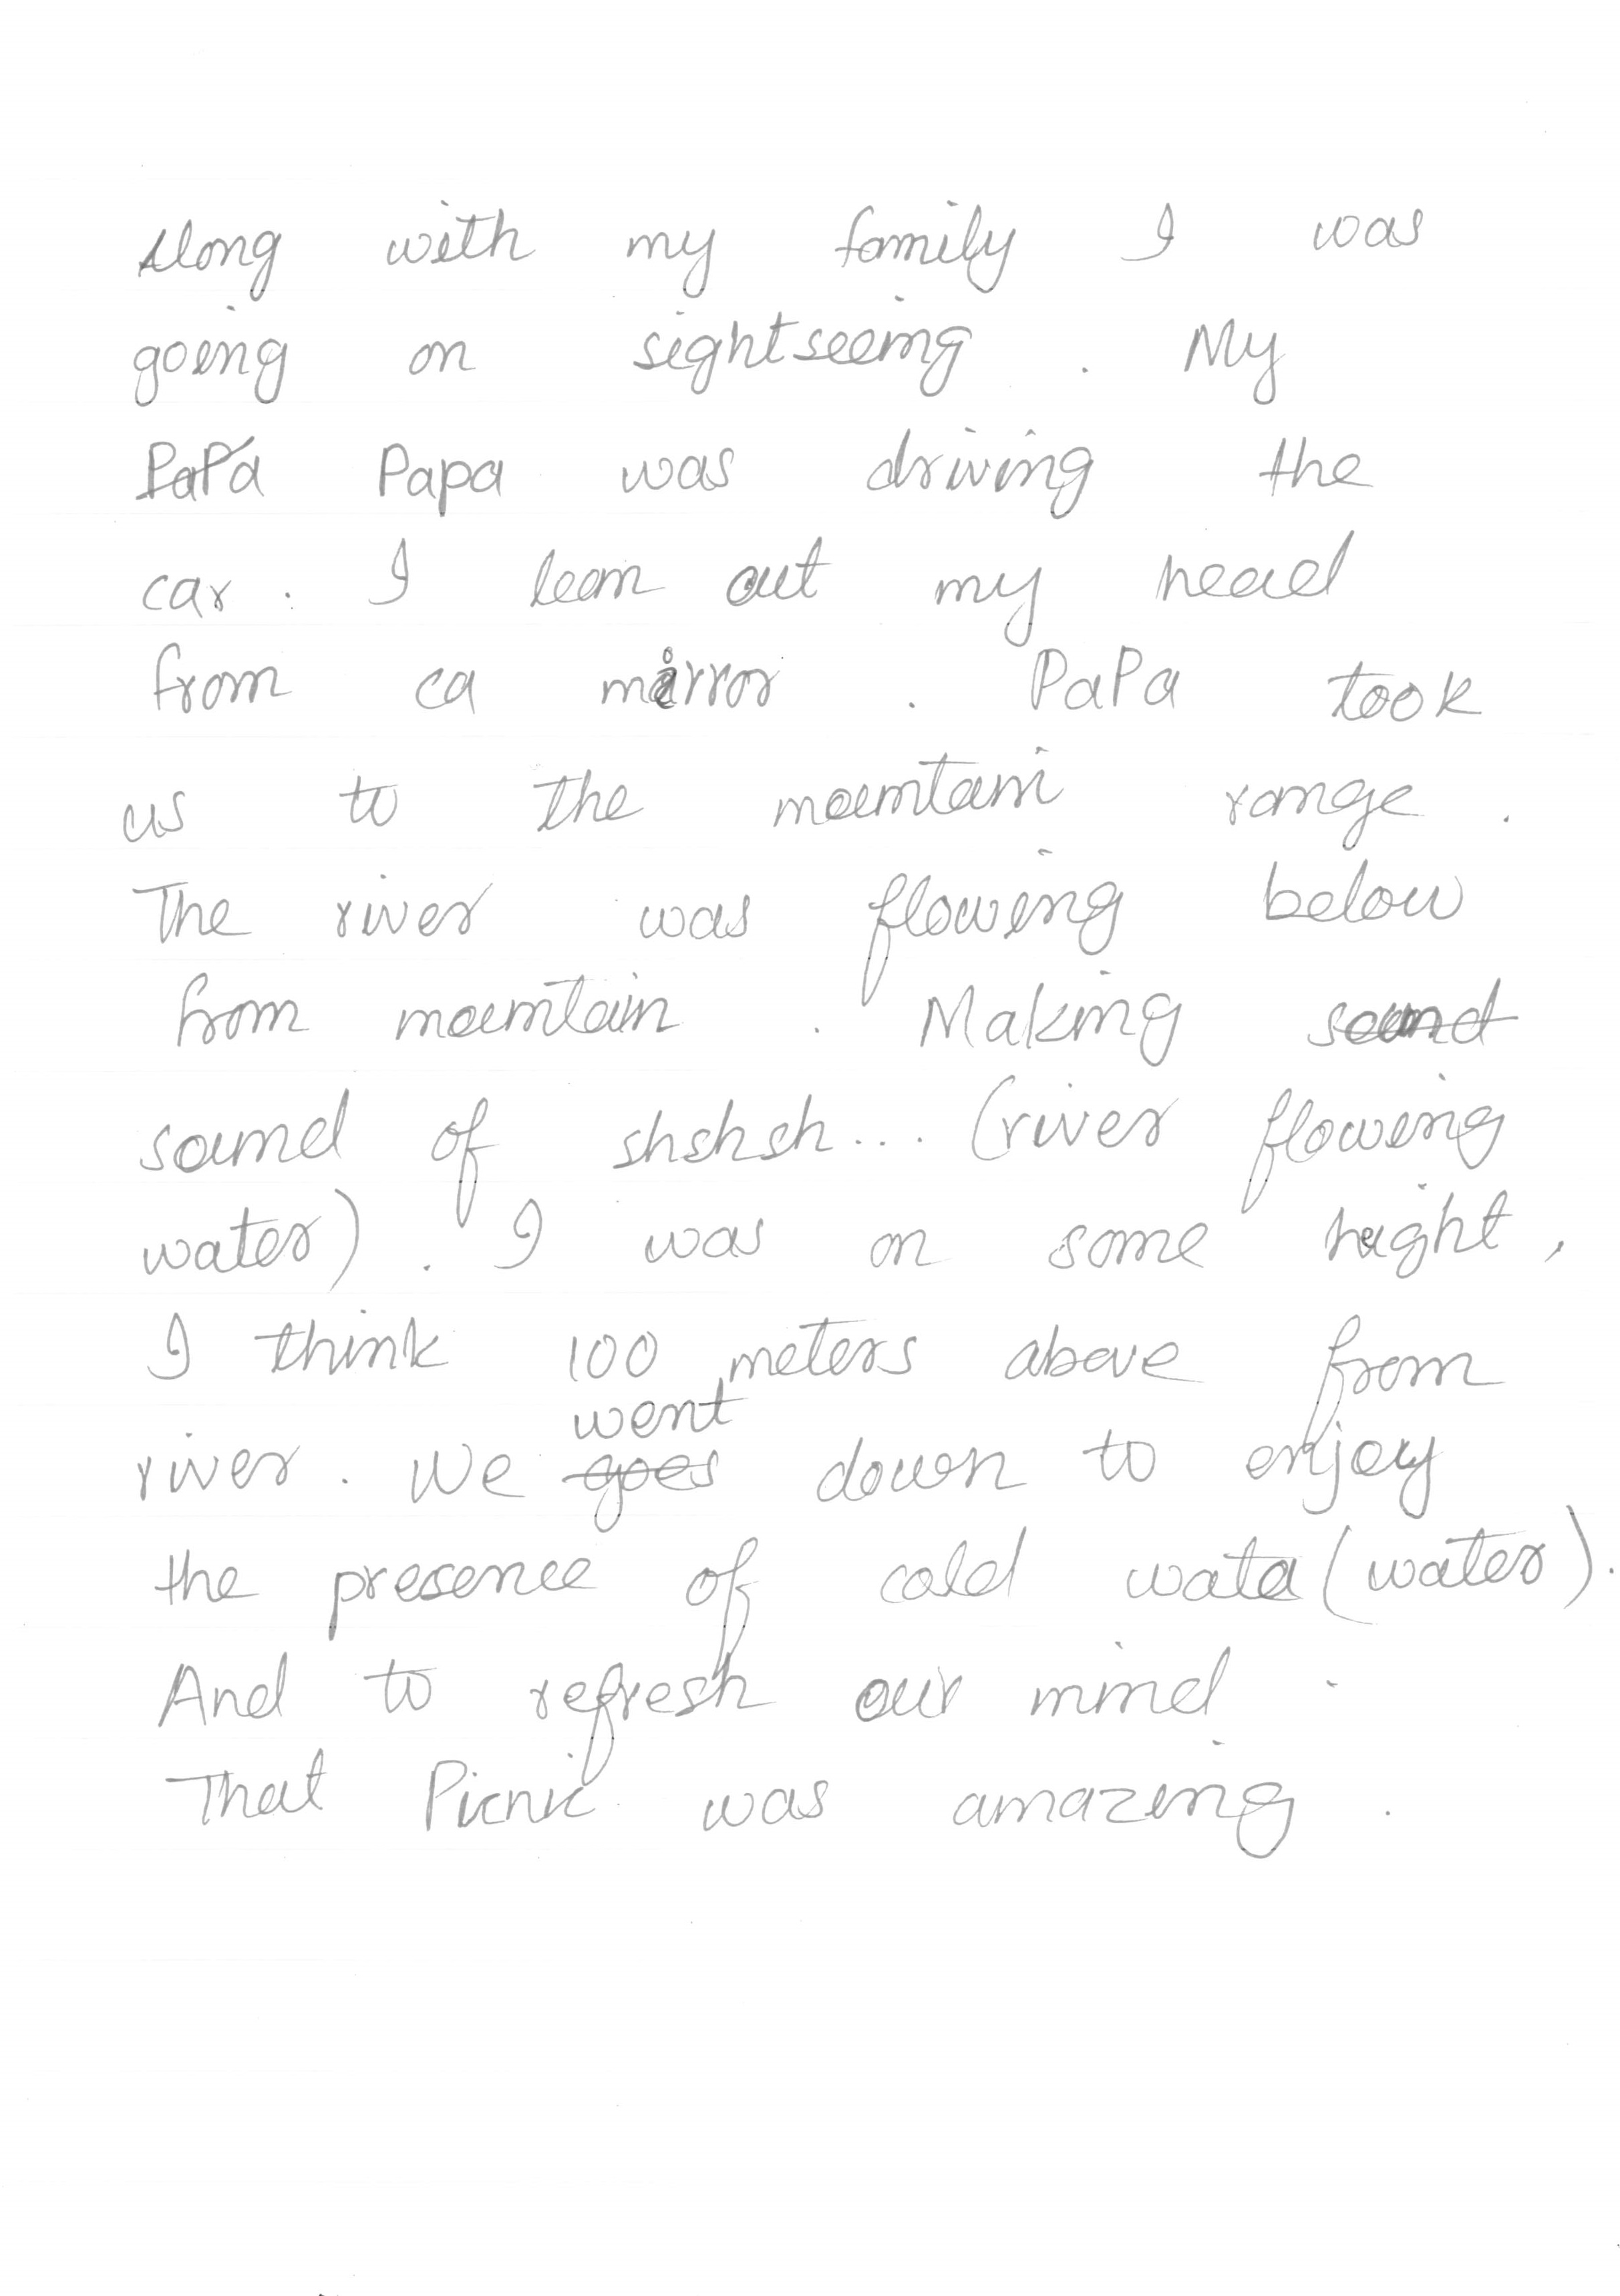 Along with my family I was
going on sightseeing . My
PaPa Papa was driving the
car . I lean out my head
from ca mirror . PaPa took
us to the mountain range .
The river was flowing below
from mountain . Making sound
sound of shshsh... (river flowing
water) . I was on some hight ,
I think 100 meters above from
went
river . We goes down to enjoy
the presence of cold wata (water) .
And to refresh our mind .
That Picnic was amazing .